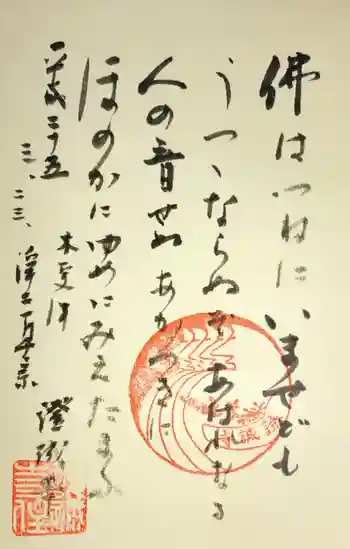 佛はつねにいませども
うつゝならぬぞあはれなる
人の音せぬあかつきに
ほのかにゆめにみえたまふ
平成二十五
三、二三、
木更津